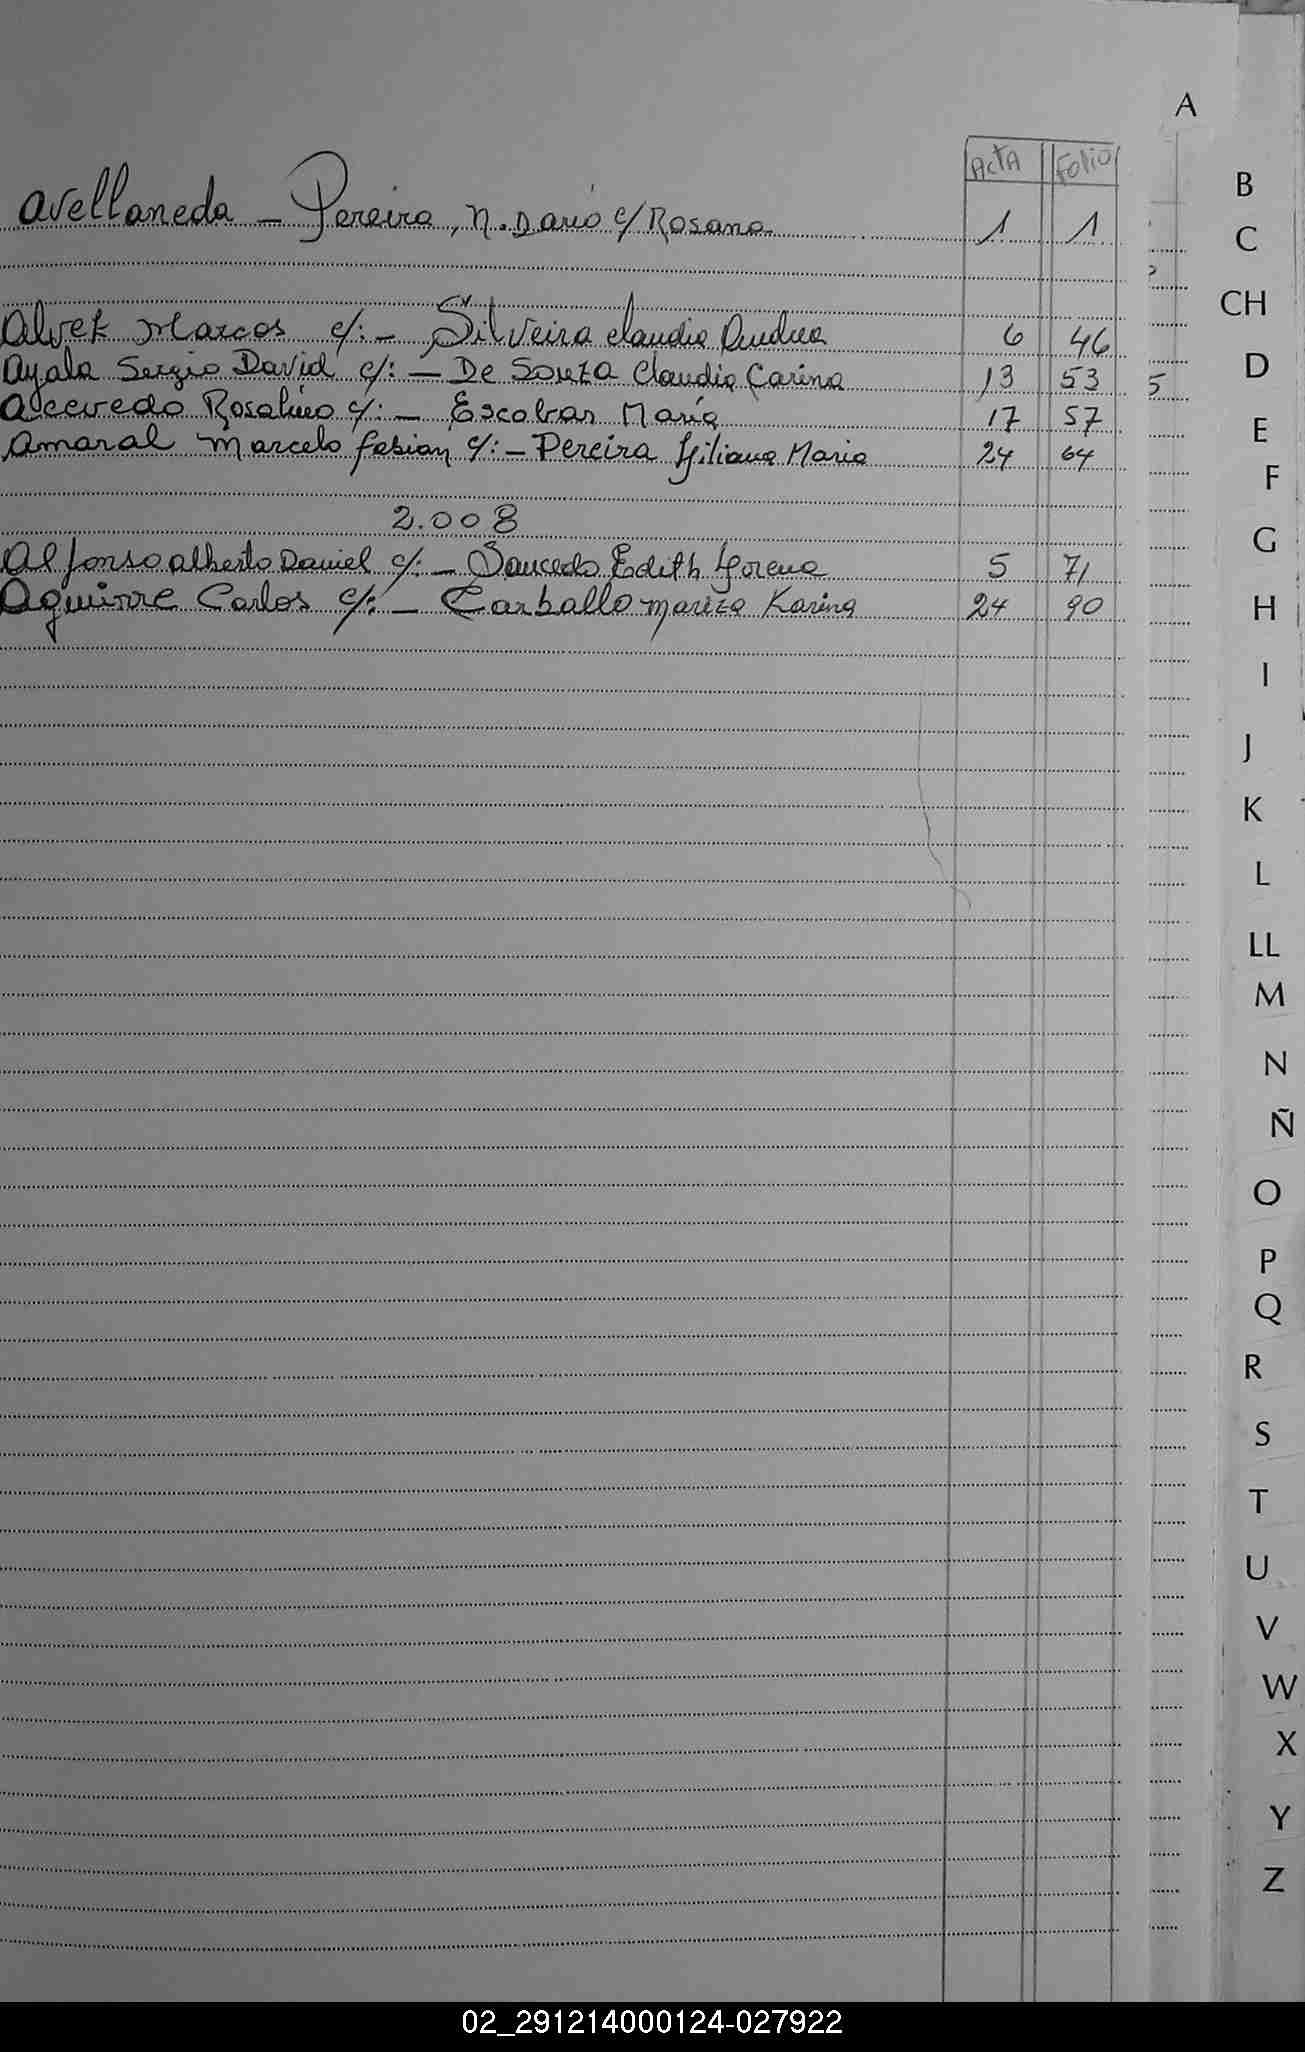 A
ACTA FOLIO
B
Avellaneda - Pereira, N. Darío c/ Rosana 1 1
C
CH
Alvek Marcos c/: - Silveira Claudia Andrea 6 46
D
Ayala Sergio David c/: - De Souza Claudia Carina 13 53 5
Acevedo Rosalino c/: - Escobar María 17 57
E
Amaral Marcelo Fabian c/: - Pereira Liliana Maria 24 64
F
2.008
G
Alfonso Alberto Daniel c/: - Saucedo Edith Lorena 5 71
Aguirre Carlos c/: - Carballo Mariza Karina 24 90
H
I
J
K
L
LL
M
N
Ñ
O
P
Q
R
S
T
U
V
W
X
Y
Z
02_291214000124-027922